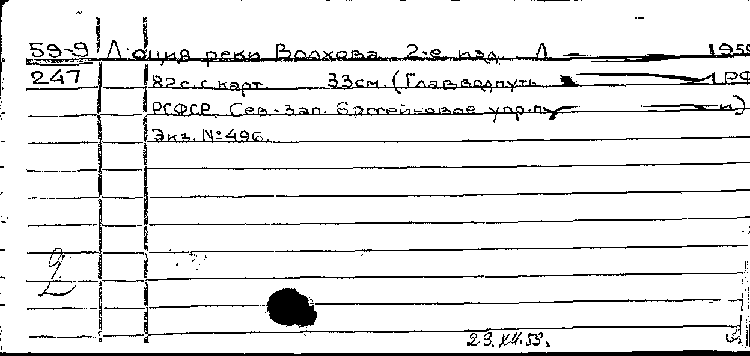 59-9 Лоция реки Волхова. 2-е изд. Л 1959
247 82 с. с карт. 33 см. (Главводпуть РФ
РСФСР. Сев.-Зап. бассейновое упр. п и)
Экз. № 496.
2
23.XII.59.